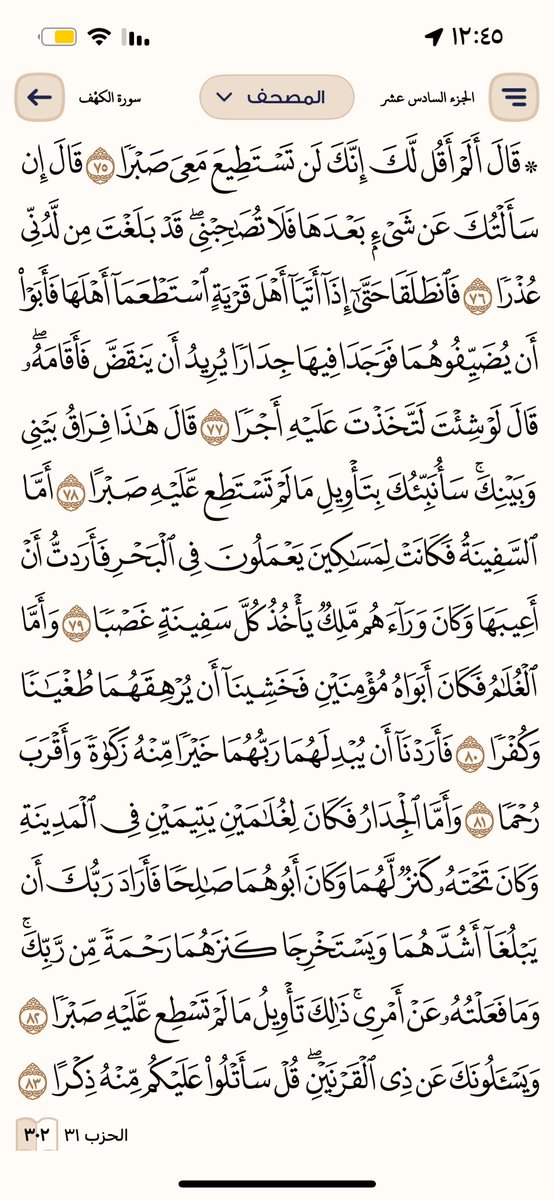 ١٢:٤٥
الجزء السادس عشر
المصحف
سورة الكهف
* قَالَ أَلَمۡ أَقُل لَّكَ إِنَّكَ لَن تَسۡتَطِيعَ مَعِيَ صَبۡرٗا ٧٥ قَالَ إِن
سَأَلۡتُكَ عَن شَيۡءِۭ بَعۡدَهَا فَلَا تُصَٰحِبۡنِيۖ قَدۡ بَلَغۡتَ مِن لَّدُنِّي
عُذۡرٗا ٧٦ فَٱنطَلَقَا حَتَّىٰٓ إِذَآ أَتَيَآ أَهۡلَ قَرۡيَةٍ ٱسۡتَطۡعَمَآ أَهۡلَهَا فَأَبَوۡاْ
أَن يُضَيِّفُوهُمَا فَوَجَدَا فِيهَا جِدَارٗا يُرِيدُ أَن يَنقَضَّ فَأَقَامَهُۥۖ
قَالَ لَوۡ شِئۡتَ لَتَّخَذۡتَ عَلَيۡهِ أَجۡرٗا ٧٧ قَالَ هَٰذَا فِرَاقُ بَيۡنِي
وَبَيۡنِكَۚ سَأُنَبِّئُكَ بِتَأۡوِيلِ مَا لَمۡ تَسۡتَطِع عَّلَيۡهِ صَبۡرًا ٧٨ أَمَّا
ٱلسَّفِينَةُ فَكَانَتۡ لِمَسَٰكِينَ يَعۡمَلُونَ فِي ٱلۡبَحۡرِ فَأَرَدتُّ أَنۡ
أَعِيبَهَا وَكَانَ وَرَآءَهُم مَّلِكٞ يَأۡخُذُ كُلَّ سَفِينَةٍ غَصۡبٗا ٧٩ وَأَمَّا
ٱلۡغُلَٰمُ فَكَانَ أَبَوَاهُ مُؤۡمِنَيۡنِ فَخَشِينَآ أَن يُرۡهِقَهُمَا طُغۡيَٰنٗا
وَكُفۡرٗا ٨٠ فَأَرَدۡنَآ أَن يُبۡدِلَهُمَا رَبُّهُمَا خَيۡرٗا مِّنۡهُ زَكَوٰةٗ وَأَقۡرَبَ
رُحۡمٗا ٨١ وَأَمَّا ٱلۡجِدَارُ فَكَانَ لِغُلَٰمَيۡنِ يَتِيمَيۡنِ فِي ٱلۡمَدِينَةِ
وَكَانَ تَحۡتَهُۥ كَنزٞ لَّهُمَا وَكَانَ أَبُوهُمَا صَٰلِحٗا فَأَرَادَ رَبُّكَ أَن
يَبۡلُغَآ أَشُدَّهُمَا وَيَسۡتَخۡرِجَا كَنزَهُمَا رَحۡمَةٗ مِّن رَّبِّكَۚ
وَمَا فَعَلۡتُهُۥ عَنۡ أَمۡرِيۚ ذَٰلِكَ تَأۡوِيلُ مَا لَمۡ تَسۡطِع عَّلَيۡهِ صَبۡرٗا ٨٢
وَيَسۡـَٔلُونَكَ عَن ذِي ٱلۡقَرۡنَيۡنِۖ قُلۡ سَأَتۡلُواْ عَلَيۡكُم مِّنۡهُ ذِكۡرًا ٨٣
الحزب ٣١
٣٠٢